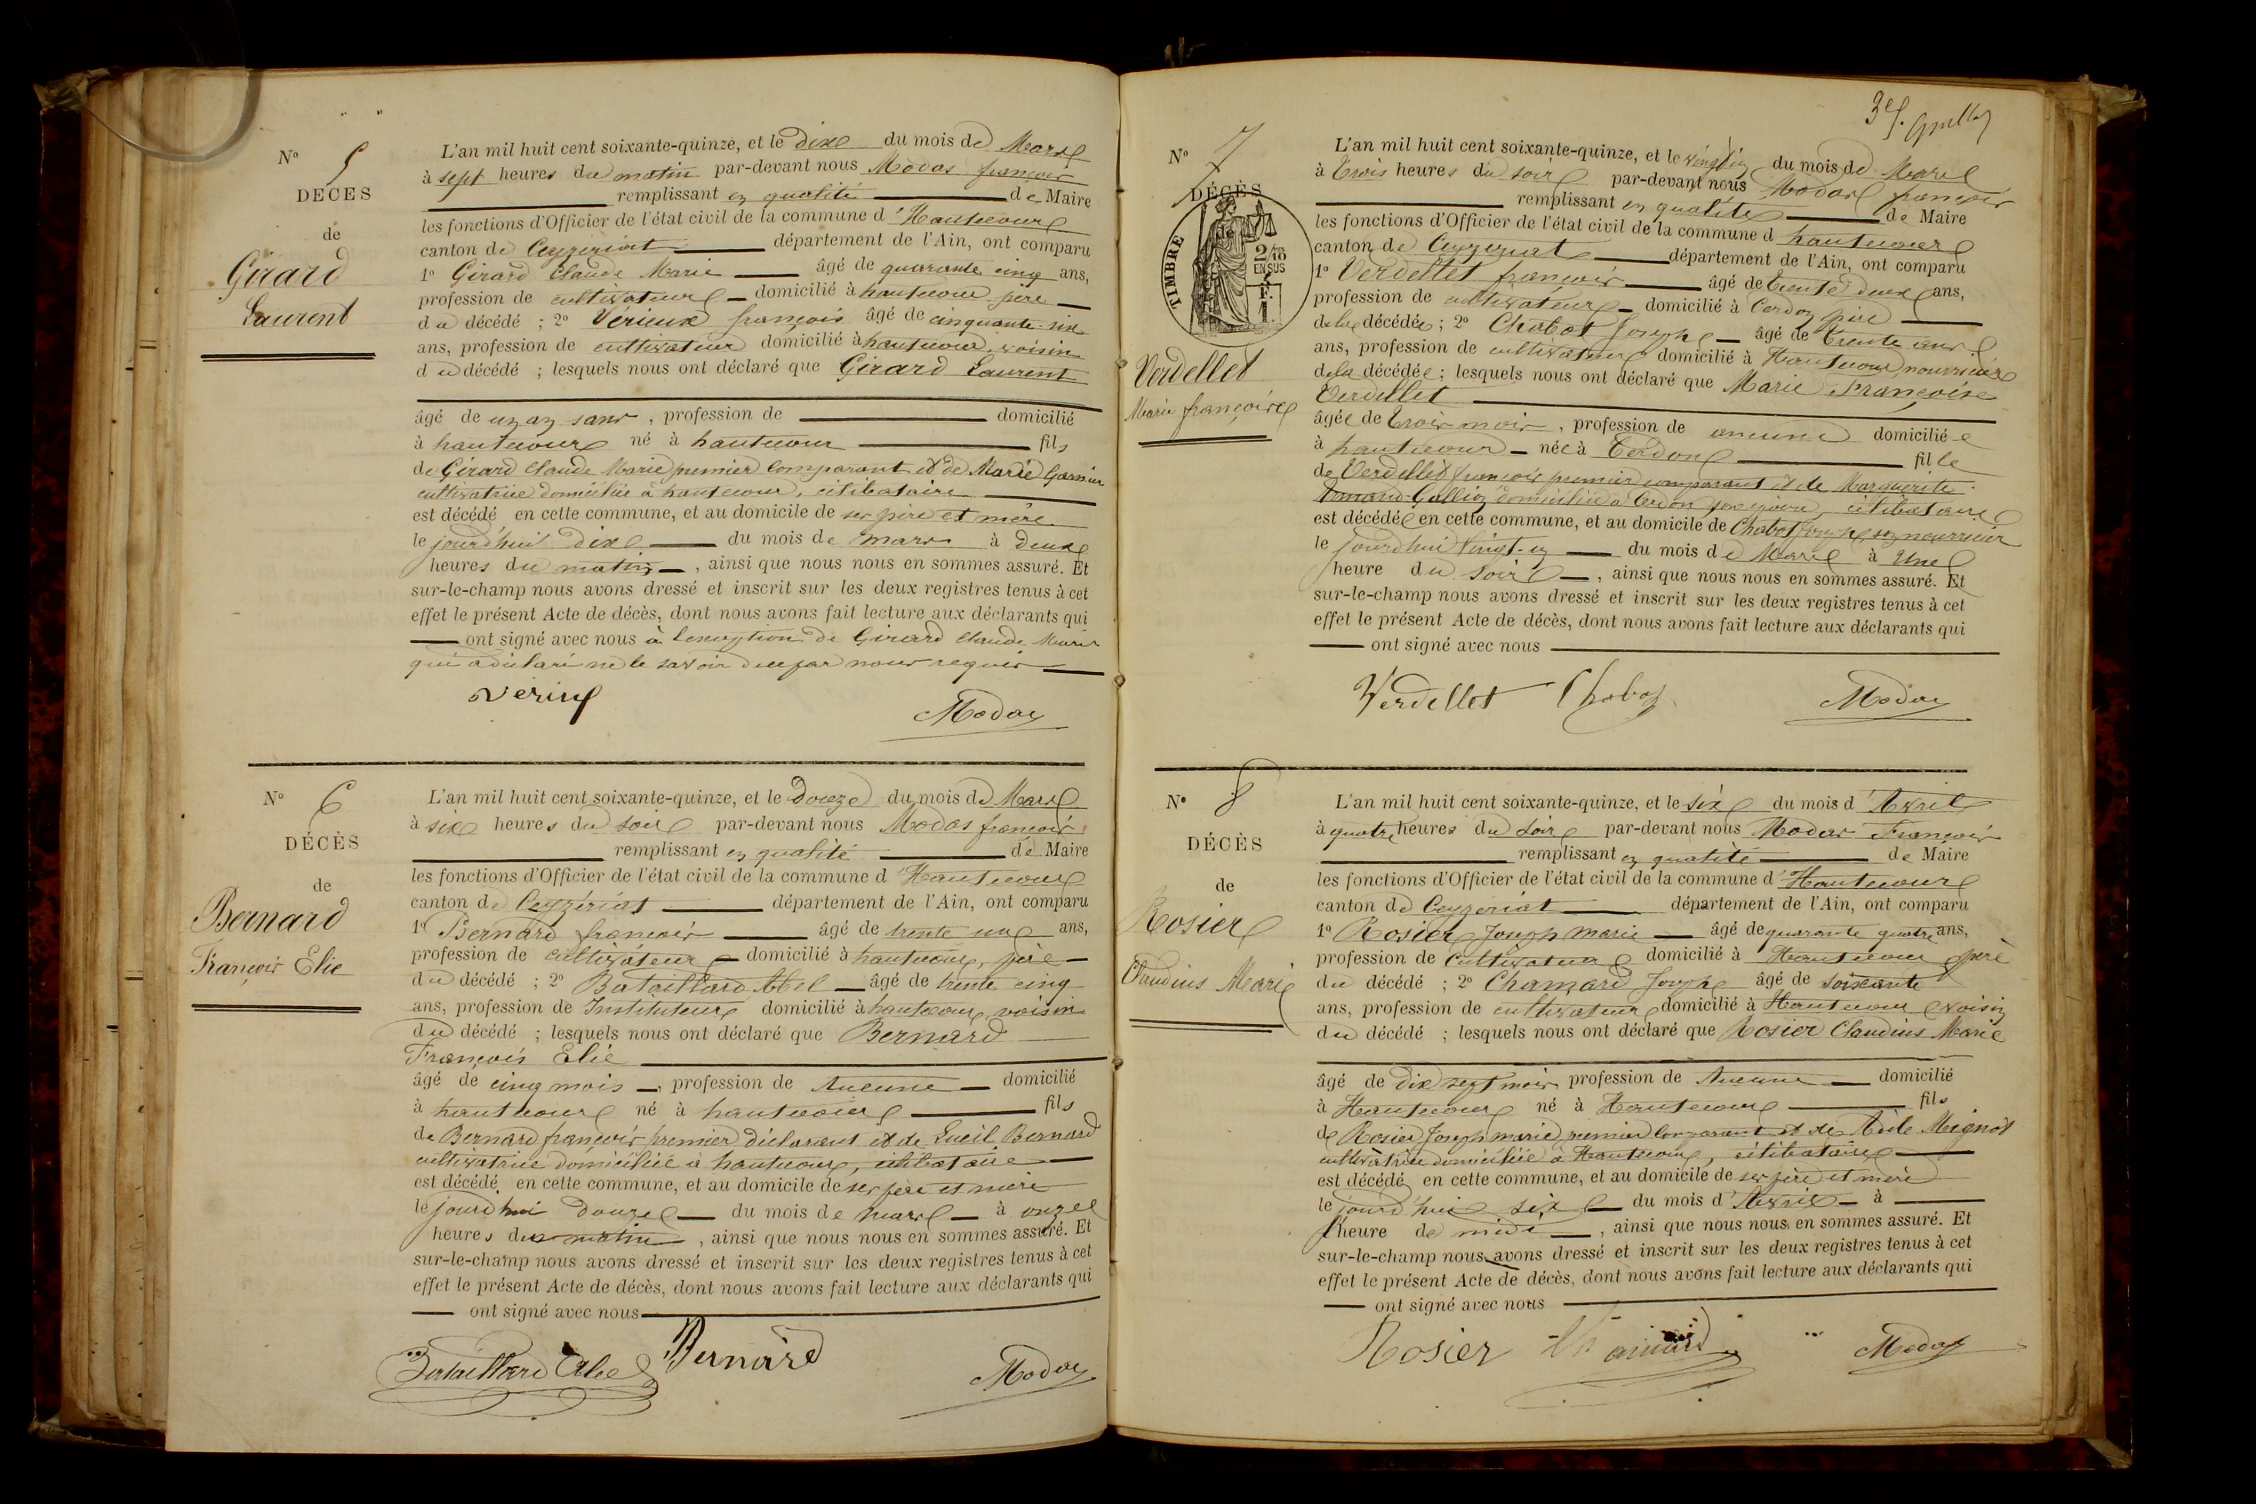 N° 5
DÉCÈS
de
Girard
Laurent
L'an mil huit cent soixante-quinze, et le dix du mois de Mars
à sept heures du matin par-devant nous Modas françois
remplissant en qualité de Maire
les fonctions d'Officier de l'état civil de la commune d'Hautecour
canton de Ceyzériat département de l'Ain, ont comparu
1° Girard Claude Marie âgé de quarante cinq ans,
profession de cultivateur domicilié à hautecour père
du décédé ; 2° Vérieux françois âgé de cinquante six
ans, profession de cultivateur domicilié à hautecour voisin
du décédé ; lesquels nous ont déclaré que Girard Laurent
âgé de un an sans , profession de domicilié
à hautecour né à hautecour fils
de Girard Claude Marie premier comparant et de Marie Garnier
cultivatrice domiciliée à hautecour, célibataire
est décédé en cette commune, et au domicile de ses père et mère
le jourd'hui dix du mois de mars à deux
heures du matin , ainsi que nous nous en sommes assuré. Et
sur-le-champ nous avons dressé et inscrit sur les deux registres tenus à cet
effet le présent Acte de décès, dont nous avons fait lecture aux déclarants qui
ont signé avec nous à l'exception de Girard Claude Marie
qui a déclaré ne le savoir de ce par nous requis
Modas
N° 6
DÉCÈS
de
Bernard
François Elie
L'an mil huit cent soixante-quinze, et le douze du mois de Mars
à six heures du soir par-devant nous Modas françois
remplissant en qualité de Maire
les fonctions d'Officier de l'état civil de la commune d'Hautecour
canton de Ceyzériat département de l'Ain, ont comparu
1° Bernard françois âgé de trente un ans,
profession de cultivateur domicilié à hautecour, père
du décédé ; 2° Bataillard Abel âgé de trente cinq
ans, profession de Instituteur domicilié à hautecour, voisin
du décédé ; lesquels nous ont déclaré que Bernard
François Elie
âgé de cinq mois , profession de Aucune domicilié
à hautecour né à hautecour fils
de Bernard françois premier déclarant et de Lucil Bernard
cultivatrice domiciliée à hautecour, célibataire
est décédé en cette commune, et au domicile de ses père et mère
le jourd'hui douze du mois de mars à onze
heures du matin , ainsi que nous nous en sommes assuré. Et
sur-le-champ nous avons dressé et inscrit sur les deux registres tenus à cet
effet le présent Acte de décès, dont nous avons fait lecture aux déclarants qui
ont signé avec nous
Bataillard Abel Bernard Modas
3e f.
N° 7
DÉCÈS
TIMBRE
2/10
EN SUS
F.
1.
Verdellet
Marie françoise
L'an mil huit cent soixante-quinze, et le vingt un du mois de Mars
à trois heures du soir par-devant nous Modas françois
remplissant en qualité de Maire
les fonctions d'Officier de l'état civil de la commune d hautecour
canton de Ceyzeriat département de l'Ain, ont comparu
1° Verdellet françois âgé de trente deux ans,
profession de cultivateur domicilié à Cerdon père
de la décédée ; 2° Chabot Joseph âgé de trente ans
ans, profession de cultivateur domicilié à Hautecour nourricier
de la décédée ; lesquels nous ont déclaré que Marie Françoise
Verdellet
âgée de trois mois , profession de aucune domiciliée
à hautecour née à Cerdon fille
de Verdellet françois premier comparant et de Marguerite
domiciliée à Cerdon célibataire
est décédée en cette commune, et au domicile de Chabot Joseph son nourricier
le jourd'hui vingt-un du mois de Mars à une
heure du soir , ainsi que nous nous en sommes assuré. Et
sur-le-champ nous avons dressé et inscrit sur les deux registres tenus à cet
effet le présent Acte de décès, dont nous avons fait lecture aux déclarants qui
ont signé avec nous
Verdellet Chabot Modas
N° 8
DÉCÈS
de
Rosier
Claudius Marie
L'an mil huit cent soixante-quinze, et le six du mois d'Avril
à quatre heures du soir par-devant nous Modas François
remplissant en qualité de Maire
les fonctions d'Officier de l'état civil de la commune d'Hautecour
canton de Ceyzeriat département de l'Ain, ont comparu
1° Rosier Joseph marie âgé de quarante quatre ans,
profession de Cultivateur domicilié à Hautecour père
du décédé ; 2° Chanard Joseph âgé de soixante
ans, profession de cultivateur domicilié à Hautecour voisin
du décédé ; lesquels nous ont déclaré que Rosier Claudius Marie
âgé de dix sept mois profession de Aucune domicilié
à Hautecour né à Hautecour fils
de Rosier Joseph marie premier comparant et de Adèle Meignot
cultivatrice domiciliée à Hautecour, célibataire
est décédé en cette commune, et au domicile de ses père et mère
le jourd'hui six du mois d'Avril à
l'heure de midi , ainsi que nous nous en sommes assuré. Et
sur-le-champ nous avons dressé et inscrit sur les deux registres tenus à cet
effet le présent Acte de décès, dont nous avons fait lecture aux déclarants qui
ont signé avec nous
Rosier Chanard Modas